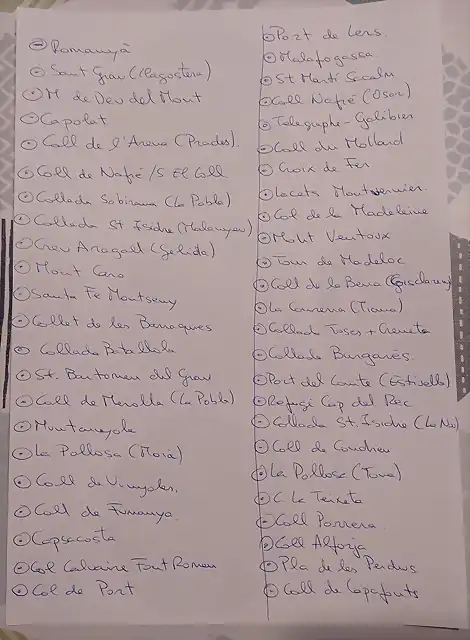 Romanyà
Sant Grau (Llagostera)
M de Deu del Mont
Capolat
Coll de l'Arena (Prades).
Coll de Nafré /S El Coll
Collada Sobirana (La Pobla)
Collada St Isidre (Malanyeu)
Creu Aragall (Gelida)
Mont Caro
Santa Fe Montseny
Collet de les Barraques
Collada Batallola
St. Bartomeu del Grau
Coll de Merolla (La Pobla)
Muntanyola
La Pollosa (Moia)
Coll de Vinyoles.
Coll de Fumanya
Capsacosta
Col Calvaire Font Romeu
Col de Port
Port de Lers.
Malafogassa
St Martí Sacalm
Coll Nafré (Osor)
Telegraphe - Galibier
Coll du Mollard
Croix de Fer
Lacets Montvernier.
Col de la Madeleine
Mont Ventoux
Tour de Madeloc
Coll de la Bena (Gisclareny)
La Conreria (Tiana)
Collada Toses + Creueta
Collada Bungarés.
Port del Comte (Estivella)
Refugi Cap del Rec
Collada St. Isidre (La Nu)
Coll de Condreu
La Pollosa (Tona)
C La Teixeta
Coll Porrera
Coll Alforja
Pla de les Perdius
Coll de Capafonts